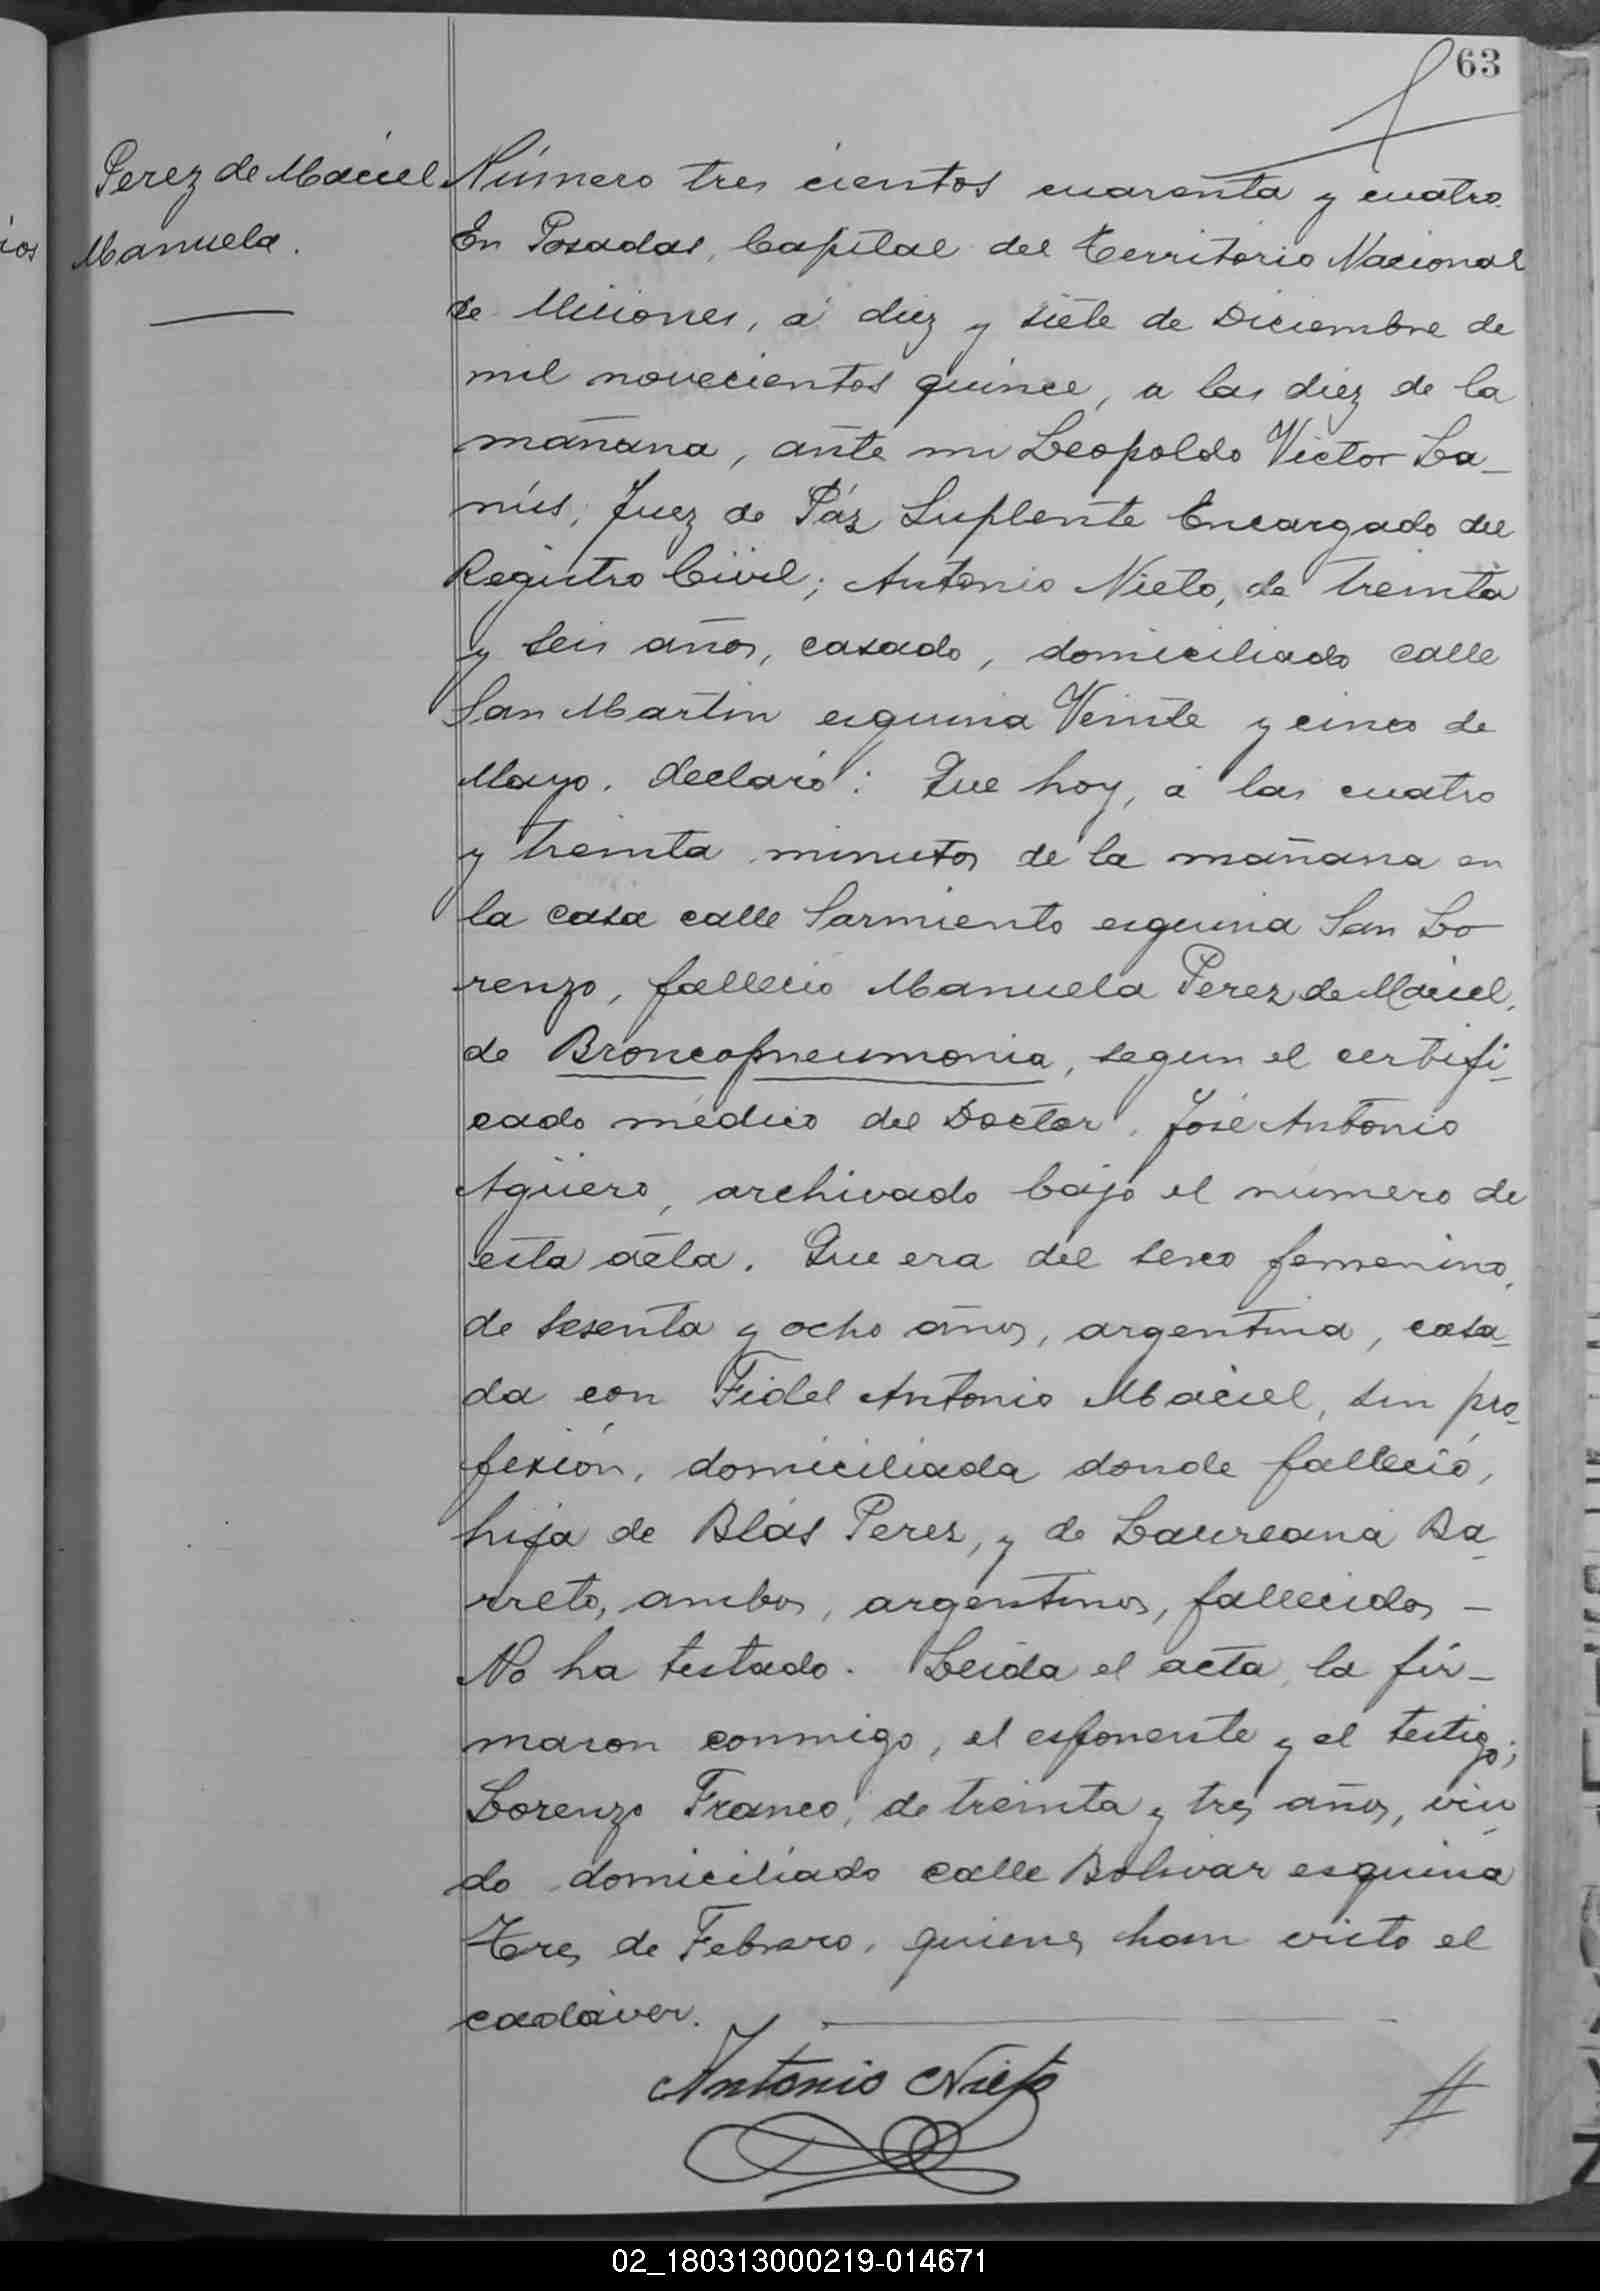 63
Perez de Maciel
Manuela.
Número tres cientos cuarenta y cuatro.
En Posadas, Capital del Territorio Nacional
de Misiones, á diez y siete de Diciembre de
mil novecientos quince, a las diez de la
mañana, ante mi Leopoldo Victor La-
nús, Juez de Páz Suplente Encargado del
Registro Civil; Antonio Nieto, de treinta
y seis años, casado, domiciliado calle
San Martin esquina Veinte y cinco de
Mayo. declaró: Que hoy, á las cuatro
y treinta minutos de la mañana en
la casa calle Sarmiento esquina San Lo-
renzo, falleció Manuela Perez de Maciel,
de Broncopneumonia, segun el certifi-
cado médico del Doctor. José Antonio
Agüero, archivado bajo el número de
esta acta. Que era del sexo femenino,
de sesenta y ocho años, argentina, casa-
da con Fidel Antonio Maciel, sin pro-
fesión, domiciliada donde falleció,
hija de Blás Perez, y de Laureana Ba-
rreto, ambos, argentinos, fallecidos -
No ha testado. Leida el acta, la fir-
maron conmigo, el esponente y el testigo;
Lorenzo Franco, de treinta y tres años, viu-
do domiciliado calle Bolivar esquina
Tres de Febrero, quienes han visto el
cadáver.
Antonio Nieto
02_180313000219-014671